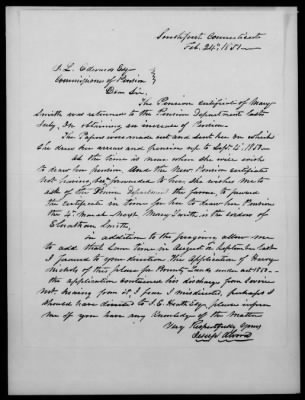 Southport Connecticut
Feb. 24th 1851
J. L. Edwards Esq
Commissioner of Pension
Dear Sir,
The Pension certificate of Mary
Smith was returned to the Pension Department last
July, for obtaining an increase of Pension.
The Papers were made out and sent her on which
she drew her arrears and pension up to Sept 4th 1850
As the time is near when she will wish
to draw her pension, And the New Pension Certificate
not having been forwarded to her, she wishes me to
ask of the Department the favor, to forward
the certificate in time for her to draw her Pension
the 4th March next. Mary Smith is the widow of
Elnathan Smith,
in addition to the foregoing allow me
to add that some time in August or September last
I forwd to your direction the application of
Nichols of this place for Bounty Lands under act 1850
the application contained his discharge from service
not hearing from it, I fear I misdirected, perhaps I
should have directed to J. E. Heath Esq, please inform
me if you have any knowledge of the matter
Very Respectfully Yours
Jessup Alvord